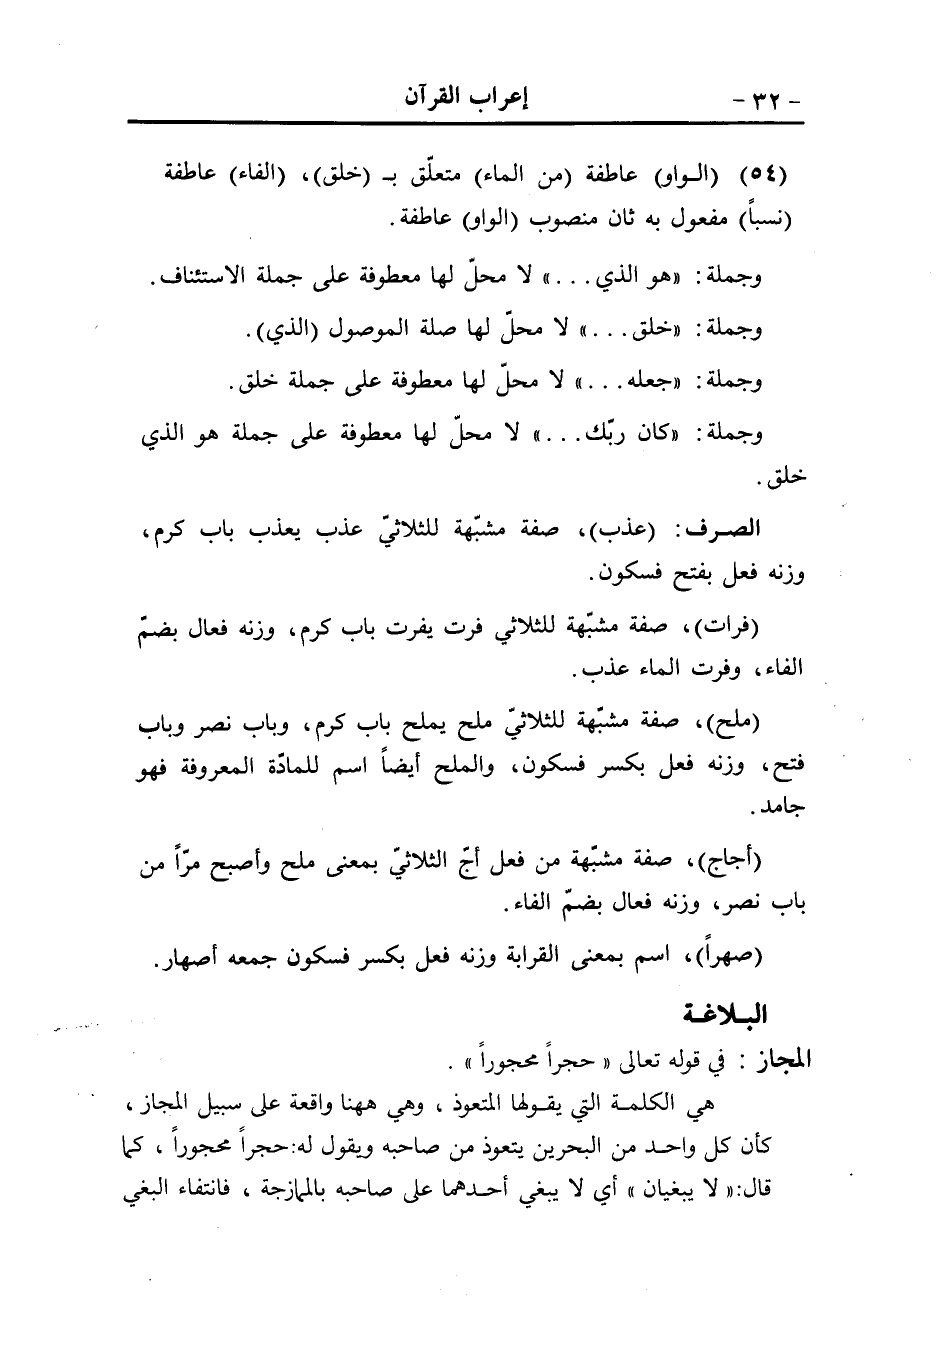 - ٣٢ - إعراب القرآن
(٥٤) (الـواو) عاطفة (من الماء) متعلّق بـ (خلق)، (الفاء) عاطفة
(نسباً) مفعول به ثان منصوب (الواو) عاطفة.
وجملة: «هو الذي...» لا محلّ لها معطوفة على جملة الاستئناف.
وجملة: «خلق...» لا محلّ لها صلة الموصول (الذي).
وجملة: «جعله...» لا محلّ لها معطوفة على جملة خلق.
وجملة: «كان ربّك...» لا محلّ لها معطوفة على جملة هو الذي
خلق.
الصـرف: (عذب)، صفة مشبّهة للثلاثيّ عذب يعذب باب كرم،
وزنه فعل بفتح فسكون.
(فرات)، صفة مشبّهة للثلاثي فرت يفرت باب كرم، وزنه فعال بضمّ
الفاء، وفرت الماء عذب.
(ملح)، صفة مشبّهة للثلاثيّ ملح يملح باب كرم، وباب نصر وباب
فتح، وزنه فعل بكسر فسكون، والملح أيضاً اسم للمادّة المعروفة فهو
جامد.
(أجاج)، صفة مشبّهة من فعل أجّ الثلاثيّ بمعنى ملح وأصبح مرّاً من
باب نصر، وزنه فعال بضمّ الفاء.
(صهراً)، اسم بمعنى القرابة وزنه فعل بكسر فسكون جمعه أصهار.
البـلاغـة
المجاز : في قوله تعالى « حجراً محجوراً » .
هي الكلمـة التي يقـولها المتعوذ ، وهي ههنا واقعة على سبيل المجاز ،
كأن كل واحـد من البحرين يتعوذ من صاحبه ويقول له:حجراً محجوراً ، كما
قال:« لا يبغيان » أي لا يبغي أحـدهما على صاحبه بالممازجة ، فانتفاء البغي